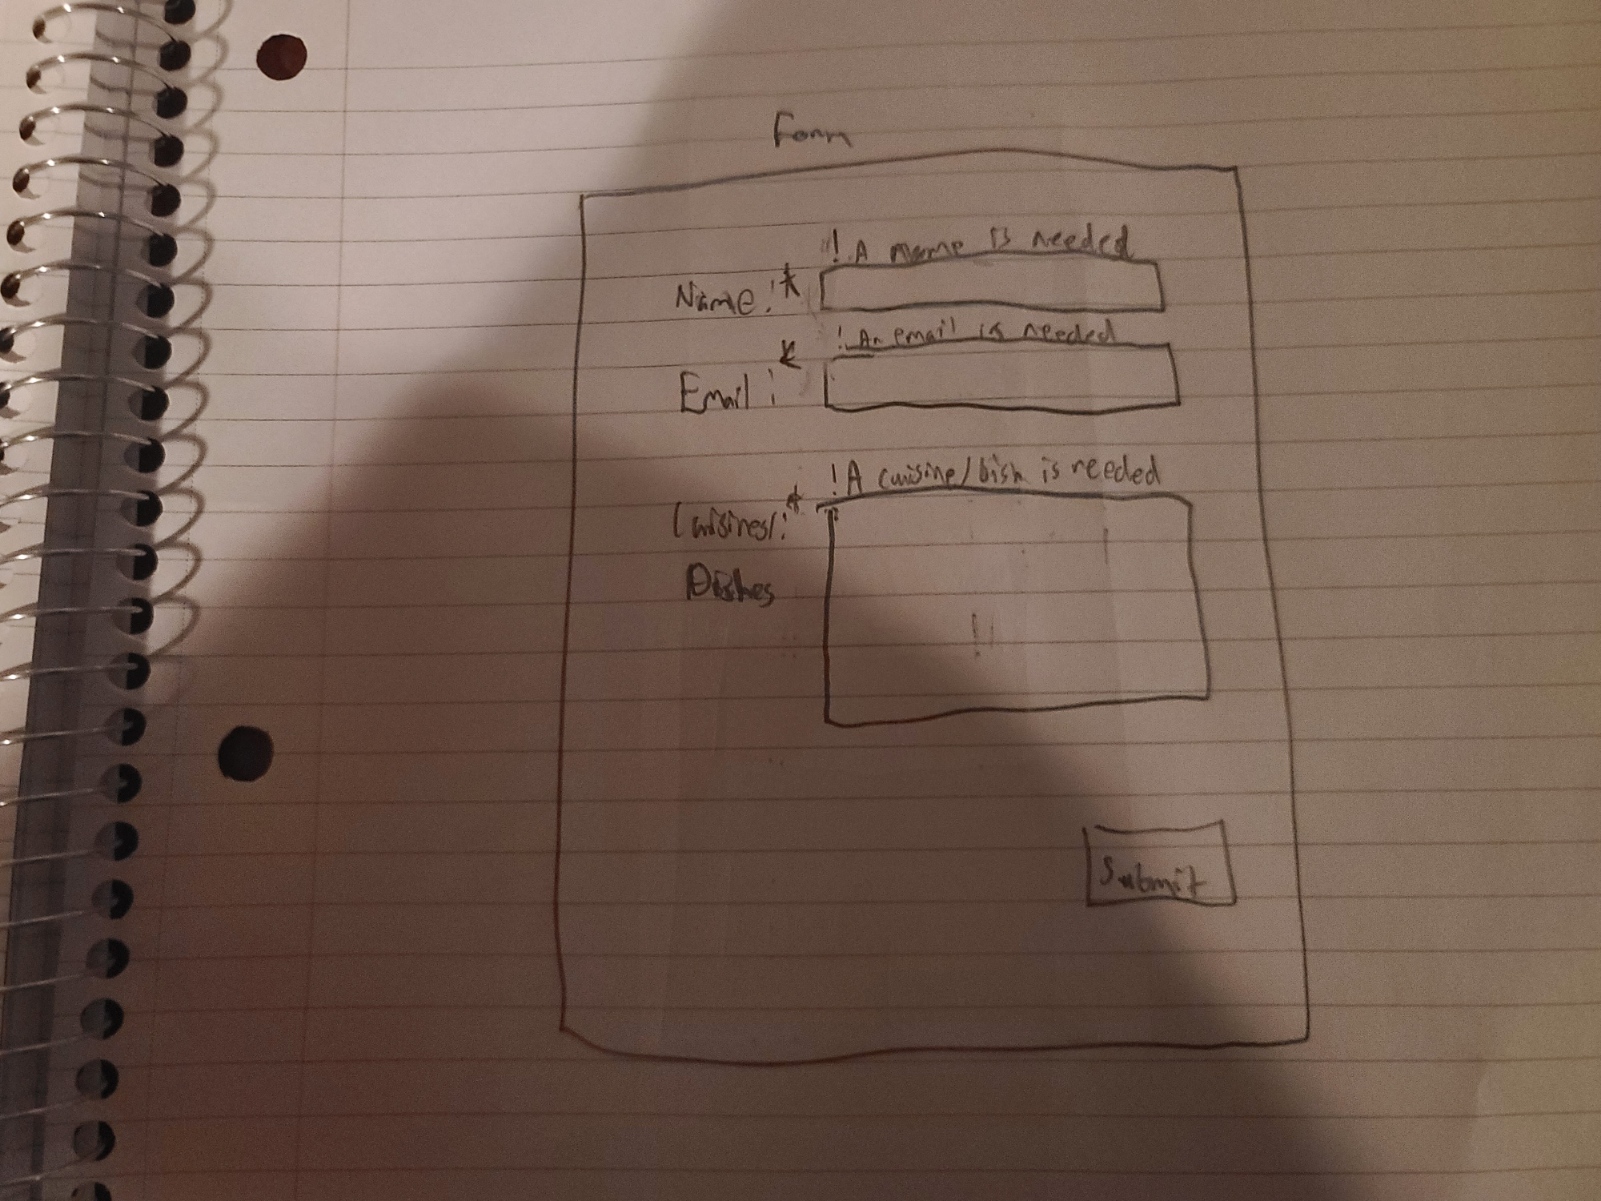 Form
! A name is needed
Name:*
! An email is needed
Email:*
! A cuisine/Dish is needed
Cuisines/:*
Dishes
Submit